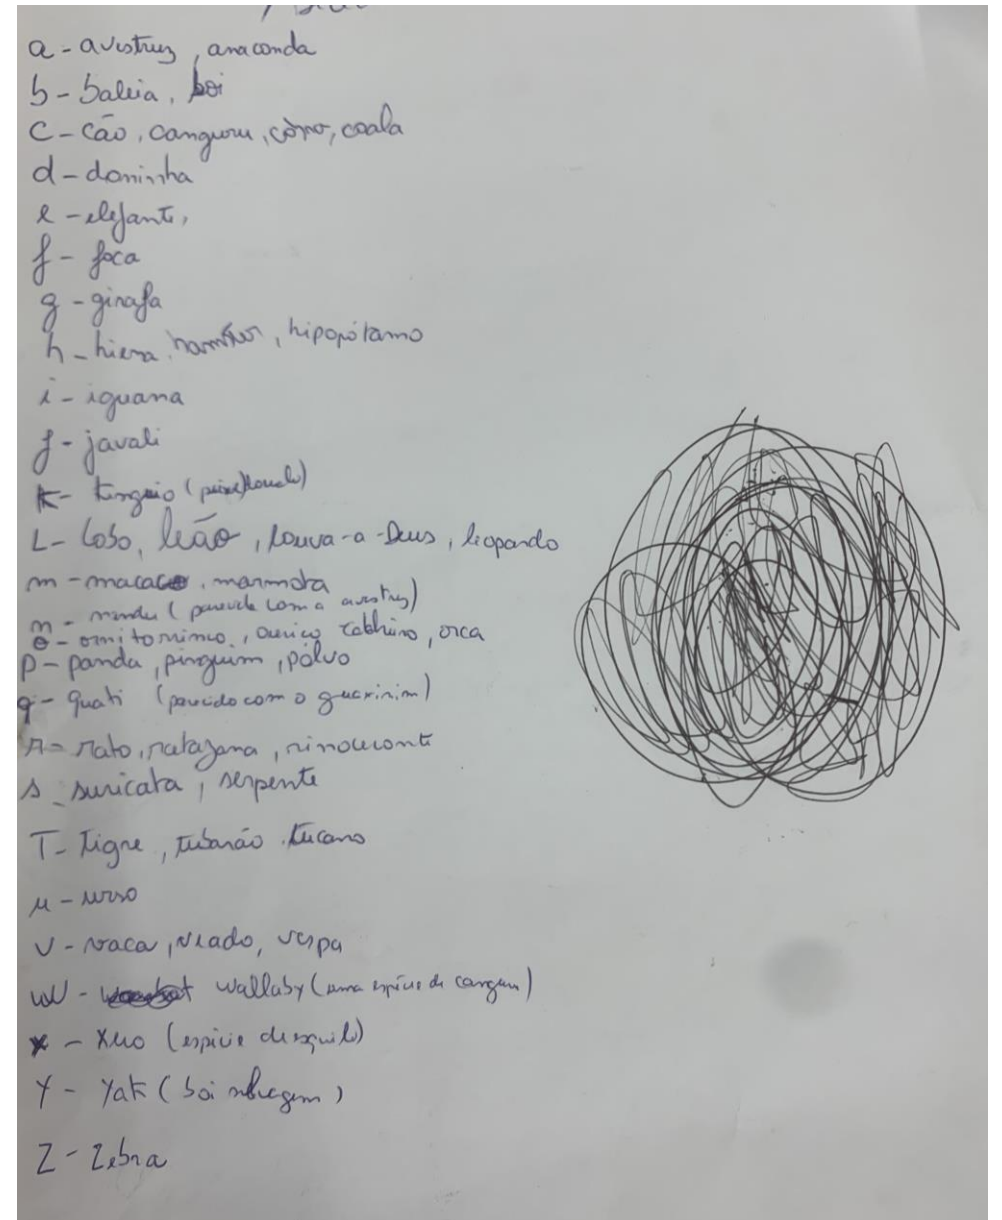 a - avestruz, anaconda
b - baleia, boi
c - cão, canguru, corvo, coala
d - doninha
e - elefante,
f - foca
g - girafa
h - hiena, hamster, hipopótamo
i - iguana
j - javali
k - kinguio (peixe
L - Lobo, leão, louva-a-Deus, leopardo
m - macaco, marmota
n - nandu (parecido com a avestruz)
o - ornitorrinco, ouriço, orca
p - panda, pinguim, pólvo
q - quati (parecido com o guaxinim)
r - rato, ratazana, rinoceronte
s - suricata, serpente
T - Tigre, tubarão, tucano
u - urso
v - vaca, veado, vespa
w - wallaby (uma espécie de canguru)
x - xero (espécie de esquilo)
Y - Yak (boi selvagem)
Z - Zebra